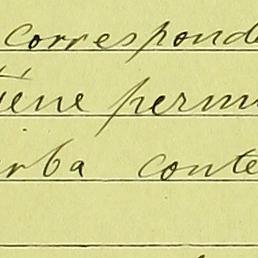 corresponde
tiene permi
arriba conte